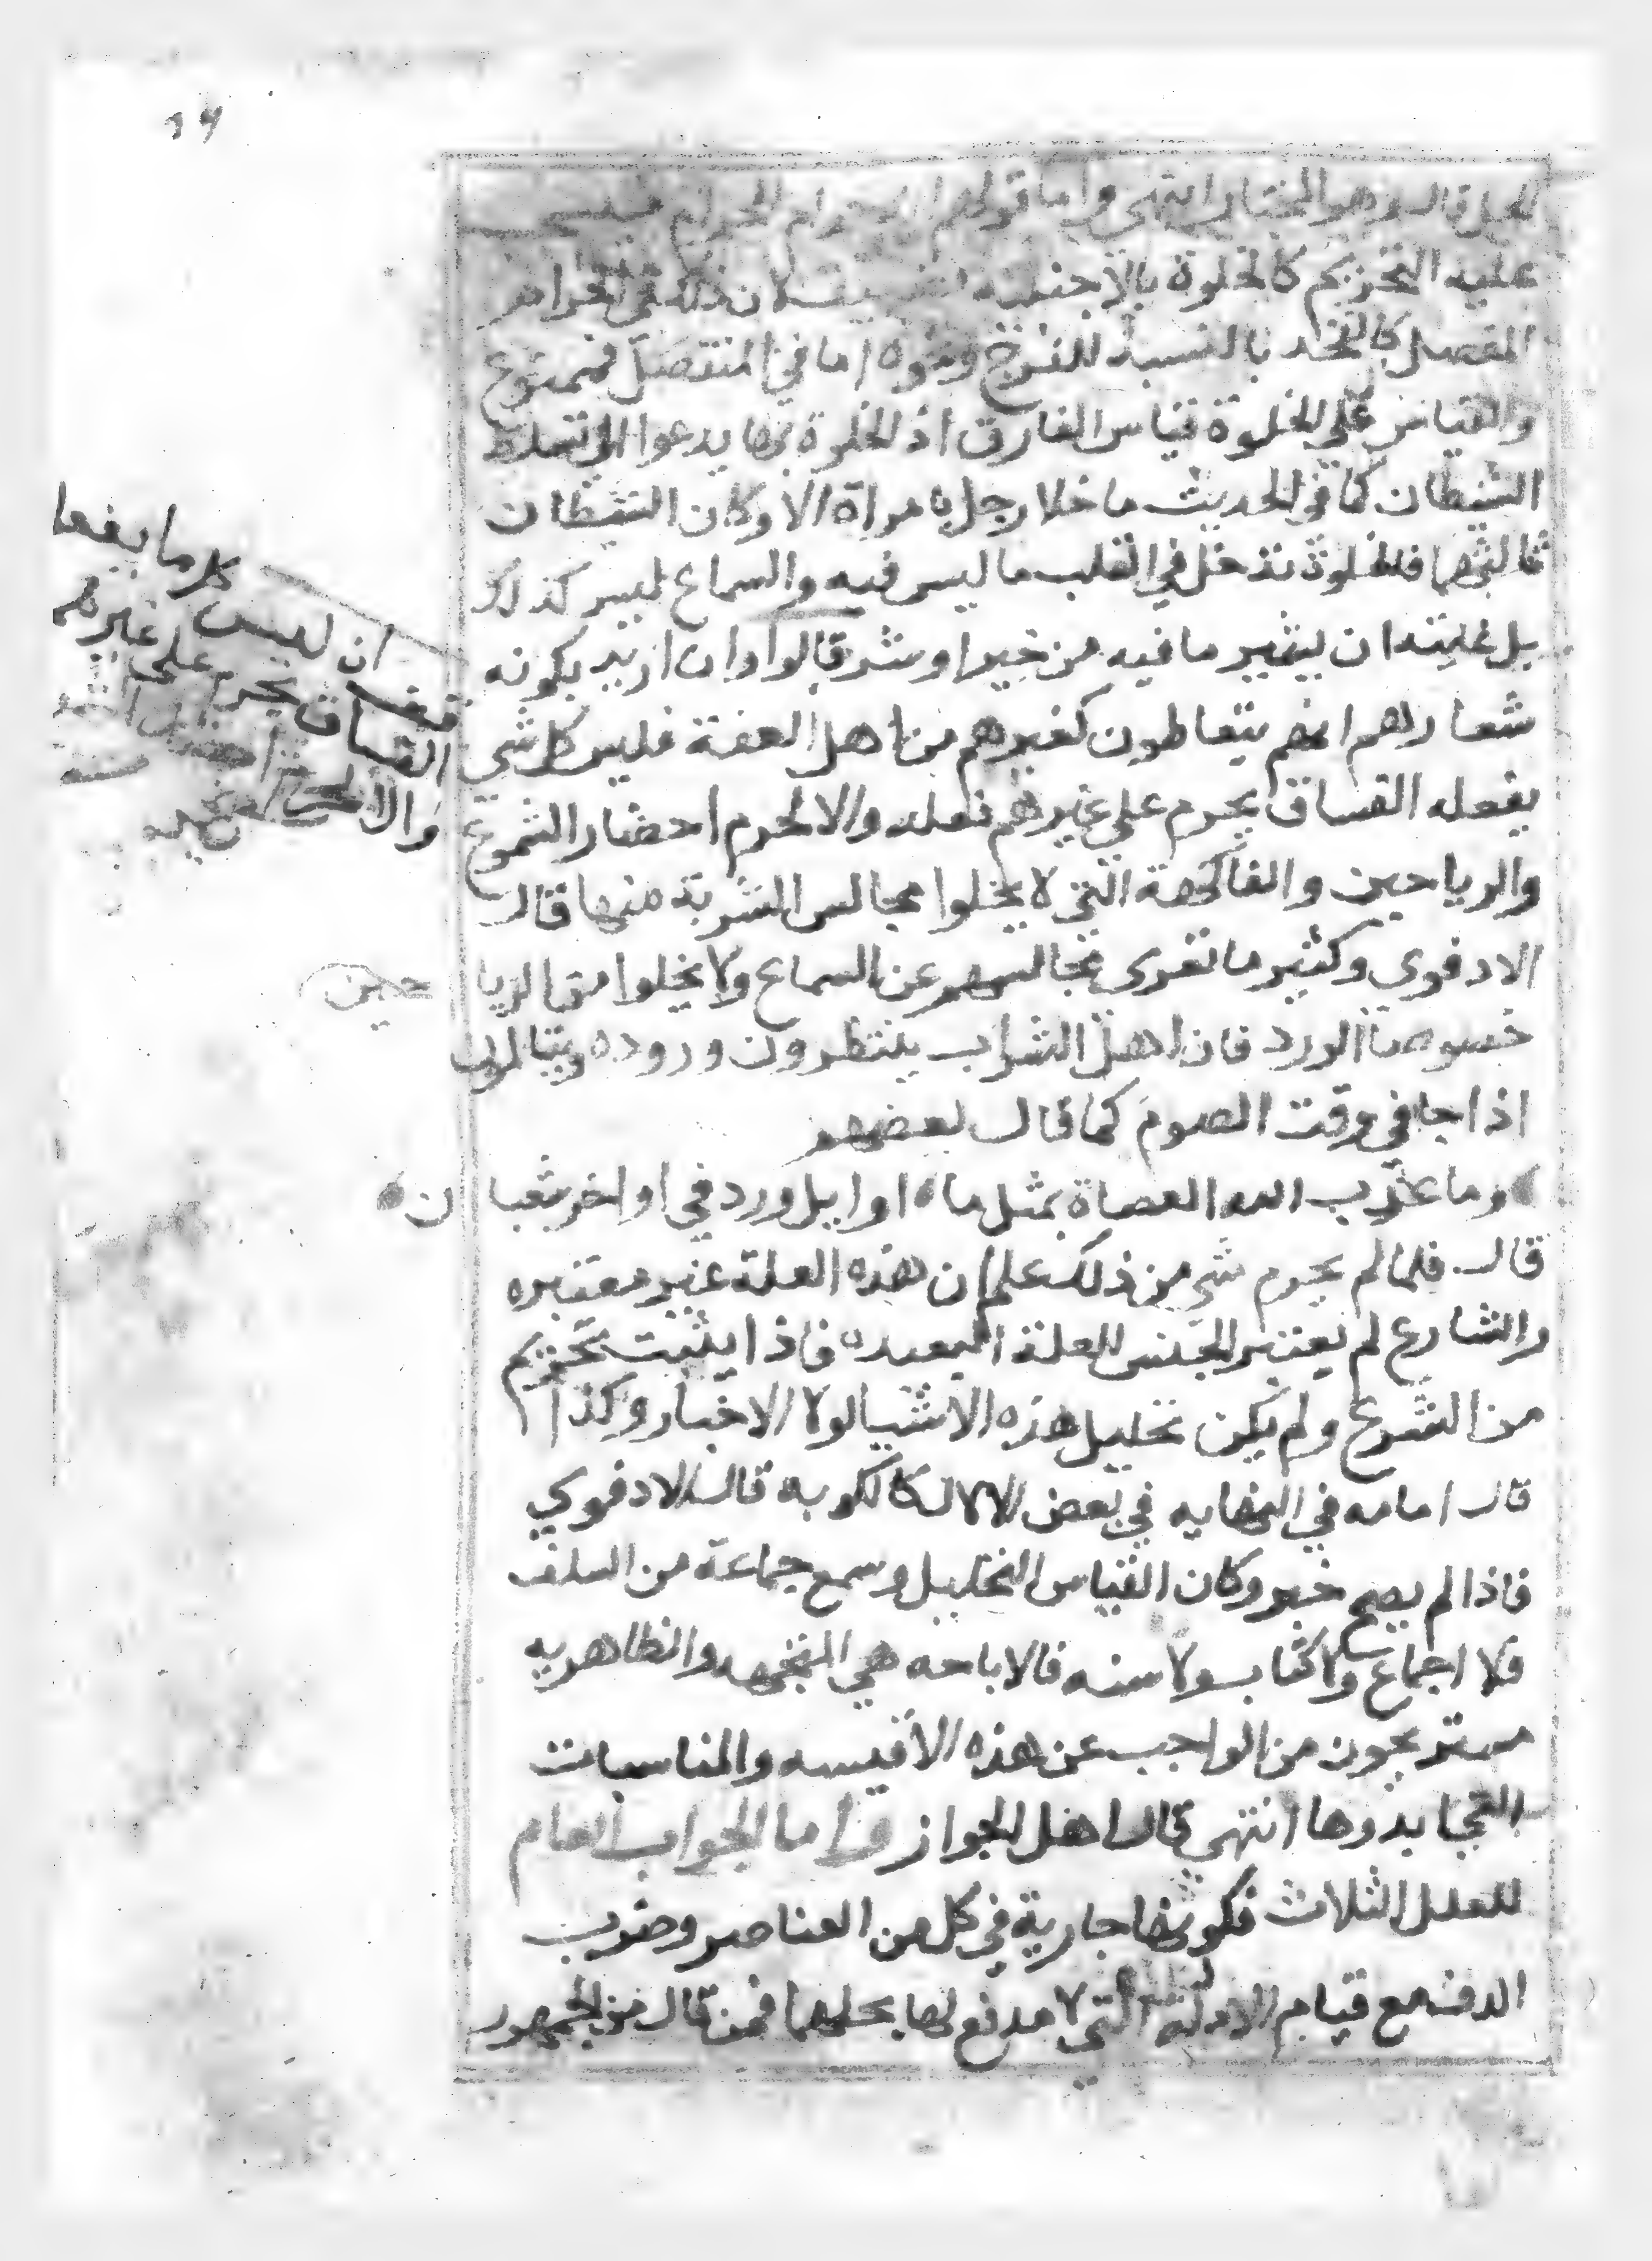 ١٦
قال وهو المختار انتهى واما قولهم الحرام فيسحب
عليه التحريم كالخلوة بالاجنبيه لان ذلك في الحرام
المتصل كالفخذ بالنسبة للفرج ونحوه اما في المنفصل فممنوع
والقياس على الخلوة قياس الفارق اذ الخلوة بها يدعوا الى تسلط
الشيطان كما في الحديث ما خلا رجل بامراة الا وكان الشيطان
ثالثهما فالخلوة تدخل في القلب ما ليس فيه والسماع ليس كذلك
بل غايته ان يثير ما فيه من خير او شر قالوا وان اريد بكونه
شعارهم انهم يتعاطون كغيرهم من اهل العفة فليس كل شي
يفعله الفساق يحرم على غيرهم فعله والا لحرم احضار الشموع
والرياحين والفاكهة التي لا يخلوا مجالس الشربة منها قال
الادفوي وكثير ما تعرى مجالسهم عن السماع ولا يخلوا من الريا حين
خصوصا الورد فان اهل الشراب ينتظرون وروده ويتالمون
اذا جا في وقت الصوم كما قال بعضهم
وما عذب الله العصاة بمثل ما اوايل ورد في اواخر شعبا ن
قال فلما لم يحرم شي من ذلك علم ان هذه العلة غير معتبره
والشارع لم يعتبر الجنس للعلة البعيده فاذا يثبت تحريم
من الشرع ولم يكن تحليل هذه الاشيا لولا الاخبار وكذا
قال امامه في النهايه في بعض الالات كالكوبه قال الادفوي
فاذا لم يصح خبر وكان القياس التحليل وسمع جماعة من السلف
فلا اجماع ولا كتاب ولا سنه فالاباحه هي المتجهه والظاهريه
مستريحون من الواجب عن هذه الاقيسه والمناسبات
التي ابدوها انتهى قال اهل الجواز واما الجواب العام
للعلل الثلاث فكونها جارية في كل من العناصر وضرب
الدف مع قيام الادلة التي لا مدفع لها بحلهما فمن قال من الجمهور
ان ليس كل ما يفعل
الفساق يحرم على غيرهم
والا لحرم